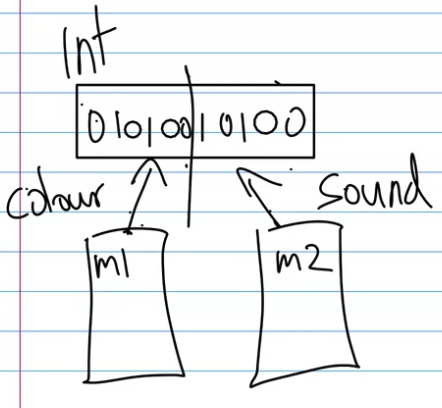 Int
01010010100
colour
sound
m1
m2